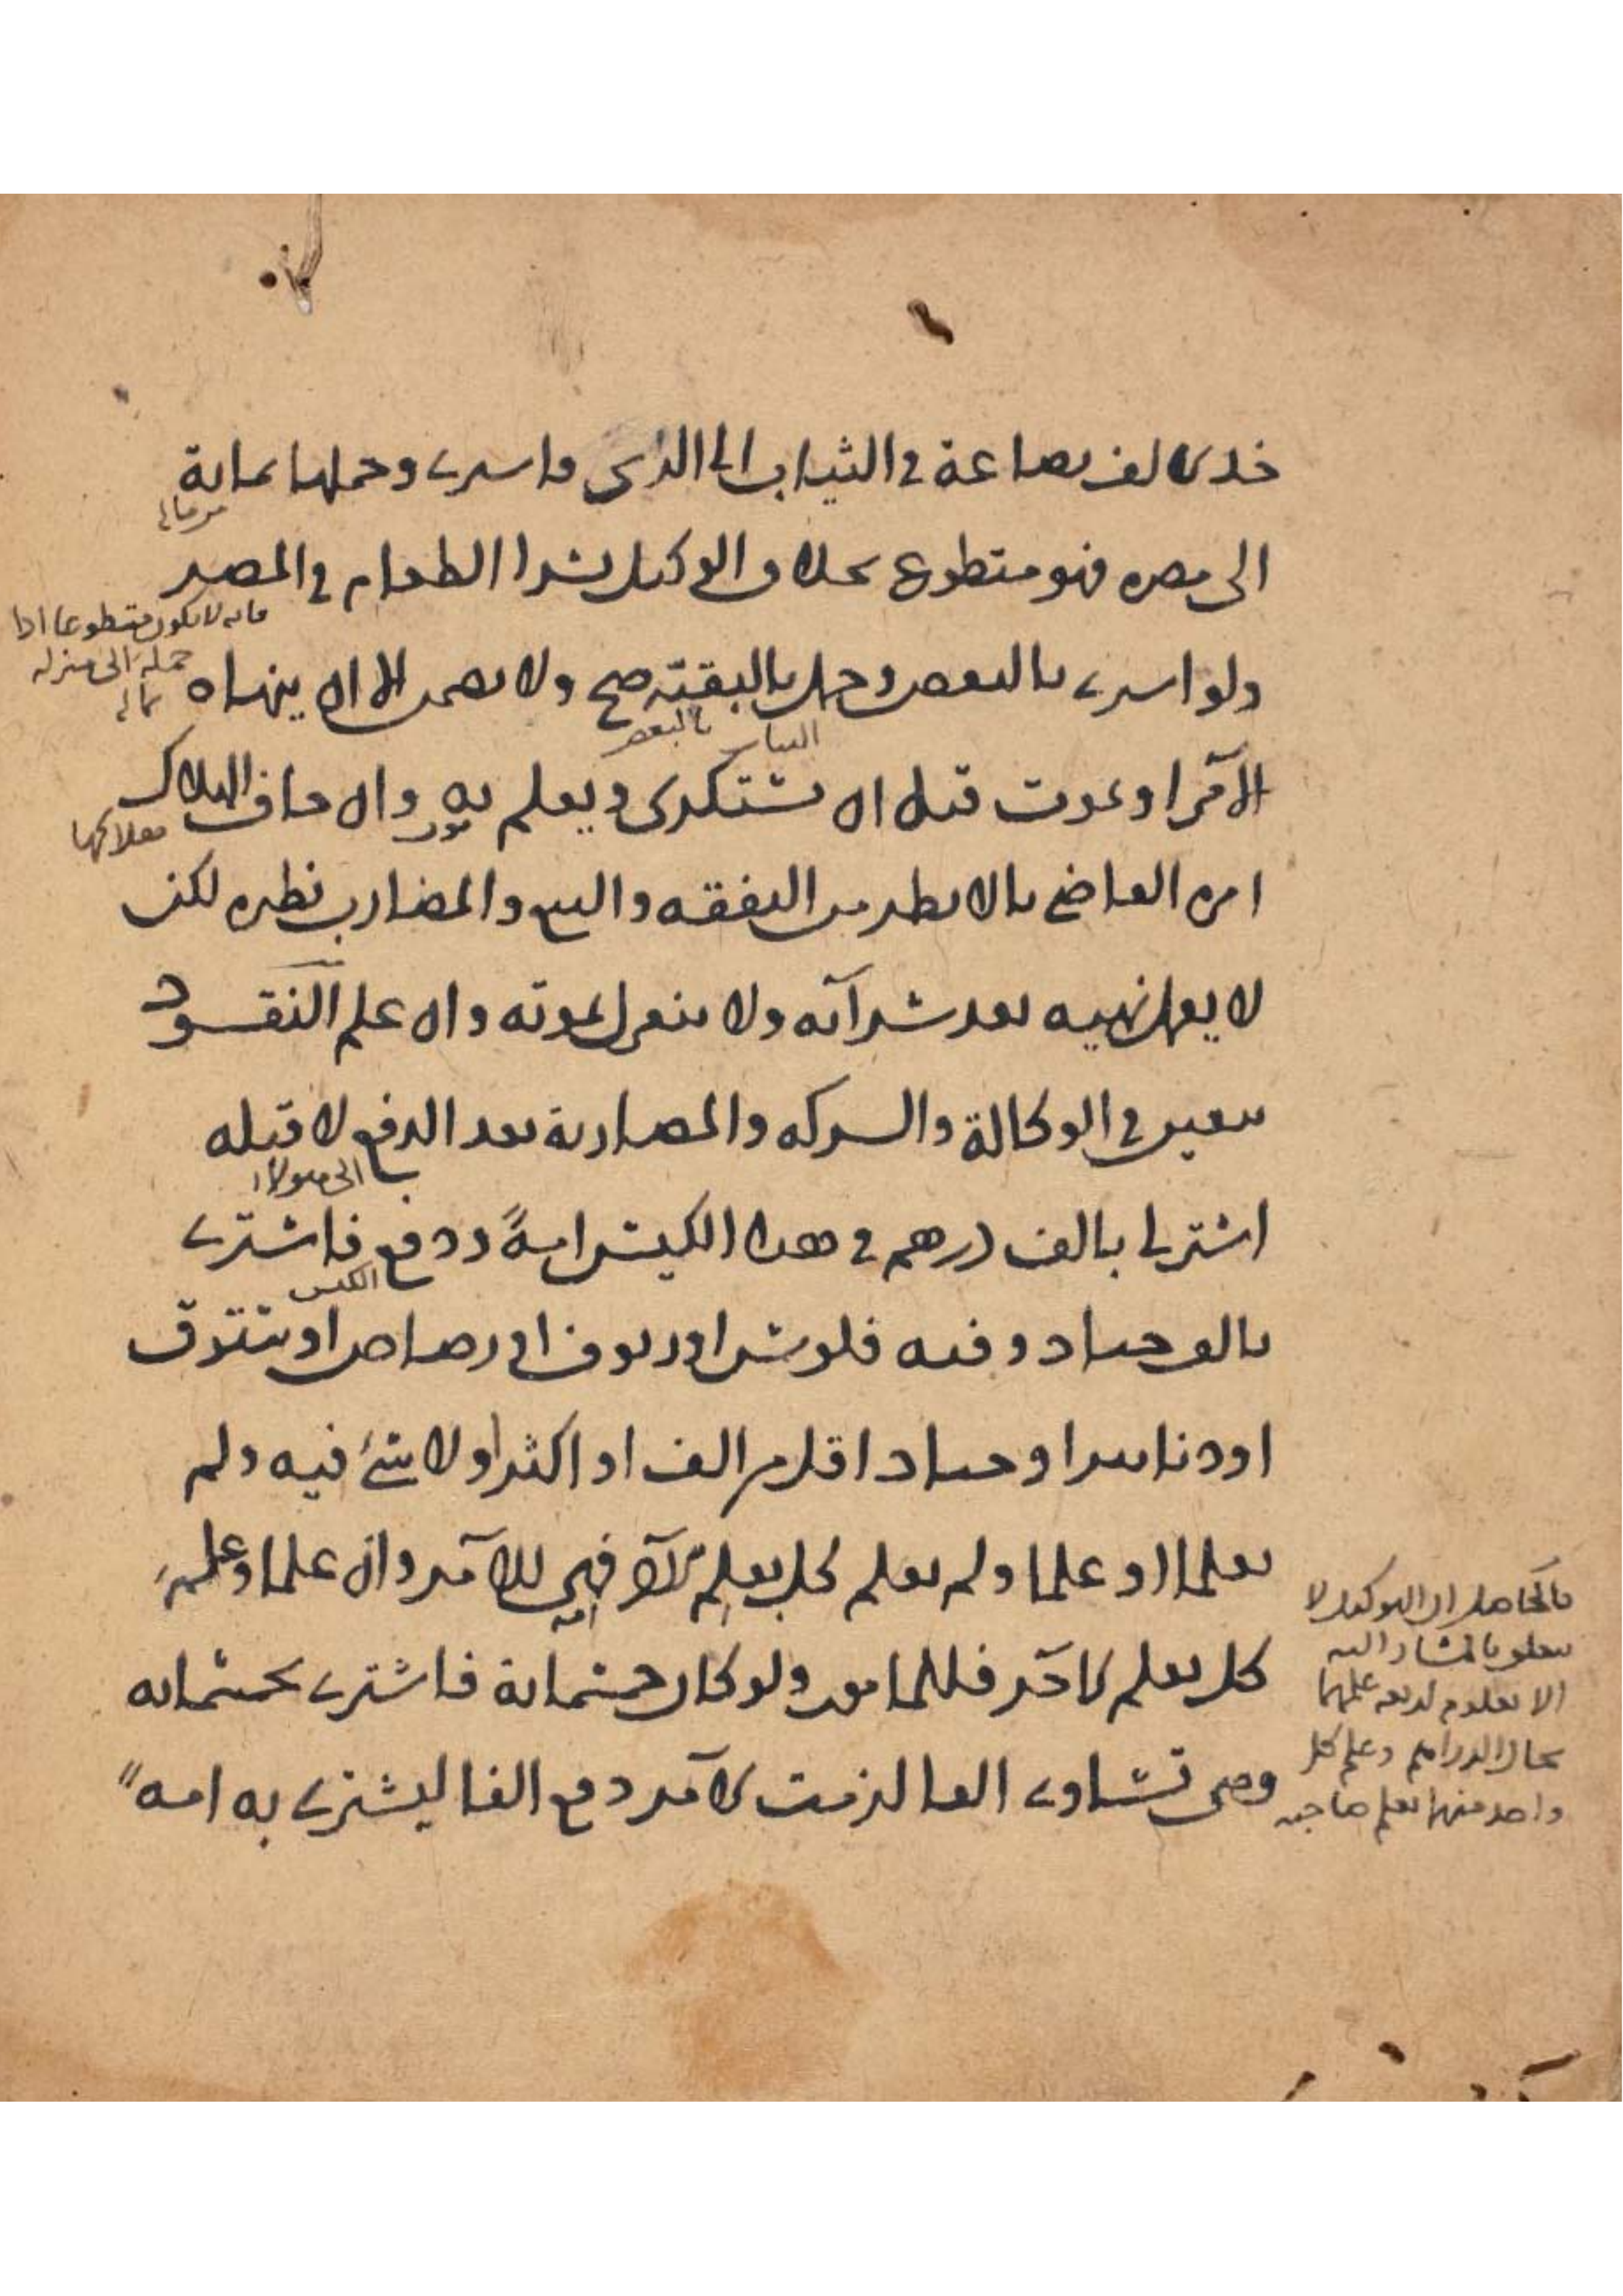 خذ الالف بضاعة في الثياب الى الري فاشترى وحملها بماية
من ماله
الى مصره فهو متطوع بخلاف الوكيل بشرا الطعام في المصر
فانه لا يكون متطوعا اذا
حمله الى منزله
بماله
ولو اشترى بالبعض وحمل بالبقية صح ولا يضمن الا ان ينهاه
الثياب بالبعض
الآمر او يموت قبل ان يستكرى ويعلم به وان خاف الهلاك
امره القاضي بالانظر من النفقه والبيع والمضارب نظيره لكن
لا يعمل نهيه بعد شرآئه ولا ينعزل بموته وان علم النقود
تتعين في الوكالة والشركه والمضاربة بعد الدفع لا قبله
اشتر لي بالف درهم في هذا الكيس امةً ودفع فاشترى
الكيس
بالف جياد وفيه فلوس او زيوف او رصاص او ستوق
او دنانير او جياد اقل من الف او اكثر او لا شئ فيه ولم
يعلما او علما ولم يعلم كل بعلم الآخر فهي للآمر وان علما وعلم
كل بعلم الآخر فللمامور ولو كان خمسماية فاشترى بخمسمايه
وهي تساوى الفا لزمت الآمر دفع الفا ليشترى به امه
فالحاصل ان التوكيل لا
يتعلق بالمشار اليه
الا بعلوم اربعه علمهما
بحال الدراهم وعلم كل
واحد منهما بعلم صاحبه